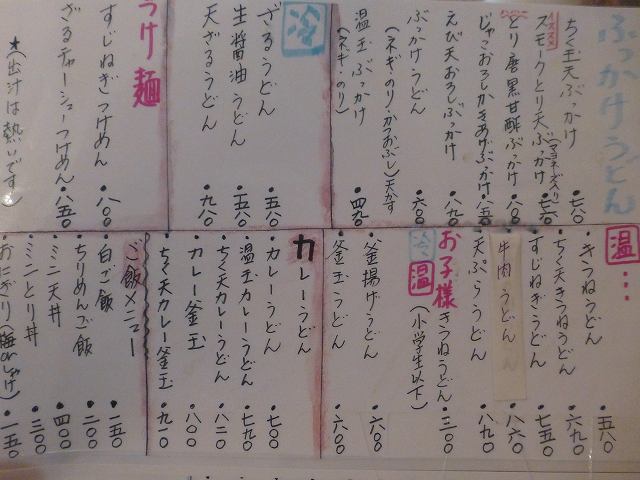 ぶっかけうどん
ちく玉天ぶっかけ ・七八〇
オススメ
スモークとり天ぶっかけ(マヨネーズ入り)
とり唐黒甘酢ぶっかけ ・八〇
じゃこおろしかきあげぶっかけ
えび天おろしぶっかけ ・八九〇
ぶっかけうどん ・六〇〇
(ネギ・のり・かつおぶし)天かす
温玉ぶっかけ ・四九〇
(ネギ・のり)
冷
ざるうどん ・五八〇
生醤油うどん ・五八〇
天ざるうどん ・九八〇
つけ麺
すじねぎつけめん ・八〇〇
ざるチャーシューつけめん ・八五〇
★(出汁は熱いです)
温…
きつねうどん ・五八〇
ちく天きつねうどん ・六九〇
すじねぎうどん ・七五〇
牛肉うどん ・八六〇
天ぷらうどん ・八九〇
お子様きつねうどん ・三〇〇
(小学生以下)
冷
温
釜揚げうどん ・六〇〇
釜玉うどん ・六〇〇
カレーうどん
カレーうどん ・七〇〇
温玉カレーうどん ・七九〇
ちく天カレーうどん ・八二〇
カレー釜玉 ・八〇〇
ちく天カレー釜玉 ・九二〇
ご飯メニュー
白ご飯 ・一五〇
ちりめんご飯 ・二〇〇
ミニ天丼 ・四〇〇
ミニとり丼 ・三〇〇
おにぎり(梅orしゃけ) ・一五〇